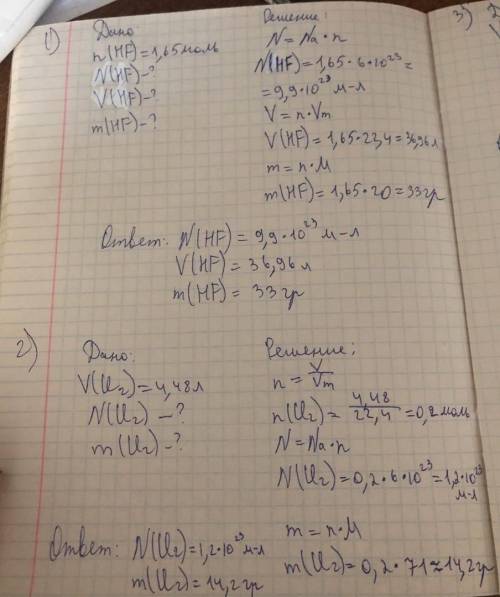 1) Дано
n(HF)=1,65 моль
N(HF)-?
V(HF)-?
m(HF)-?
Решение:
N=Na·n
N(HF)=1,65·6·10²³=
=9,9·10²³ м-л
V=n·Vm
V(HF)=1,65·22,4=36,96 л
m=n·M
m(HF)=1,65·20=33 гр
Ответ: N(HF)=9,9·10²³ м-л
V(HF)=36,96 л
m(HF)=33 гр
2) Дано:
V(Cl₂)=4,48 л
N(Cl₂)-?
m(Cl₂)-?
Решение:
n=V/Vm
n(Cl₂)=4,48/22,4=0,2 моль
N=Na·n
N(Cl₂)=0,2·6·10²³=1,2·10²³
м-л
m=n·M
m(Cl₂)=0,2·71≈14,2 гр
Ответ: N(Cl₂)=1,2·10²³ м-л
m(Cl₂)=14,2 гр
3)